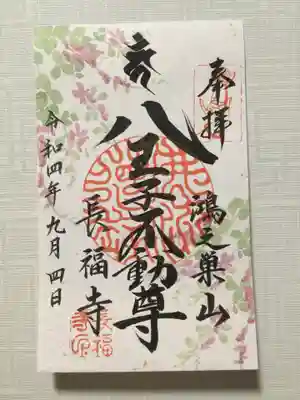 奉拝
鴻之巣山
八王子不動尊
長福寺
令和四年九月四日